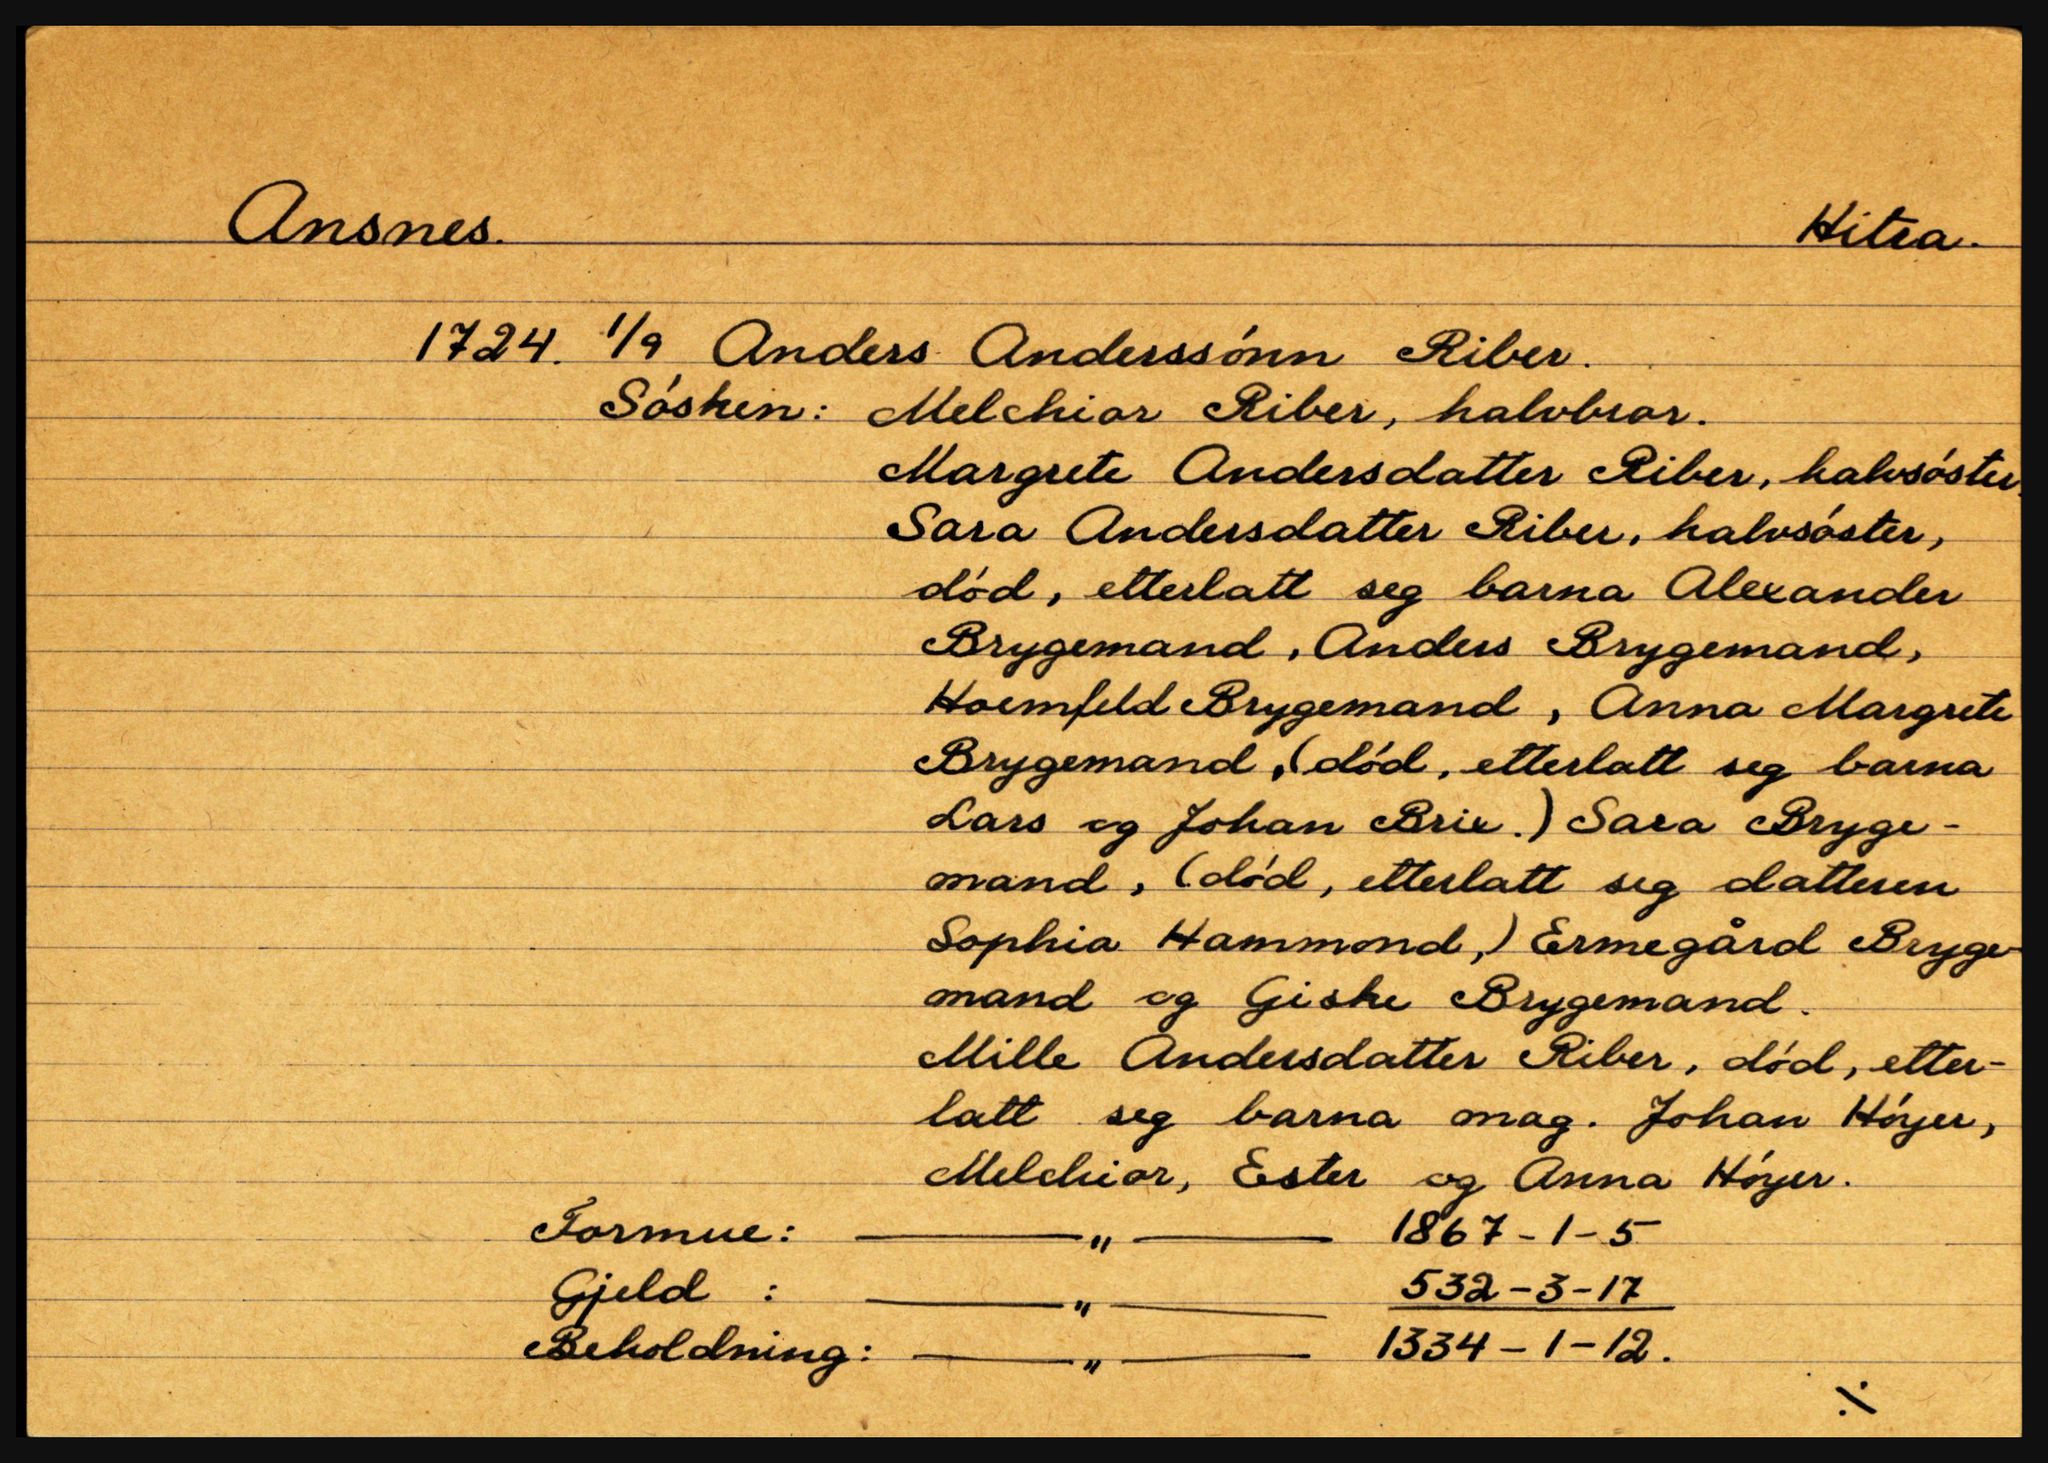 Ansnes. Hitra.
1724. 1/9 Anders Anderssónn Riber.
Sósken: Melchior Riber, halvbror.
Margrete Andersdatter Riber, halvsóster.
Sara Andersdatter Riber, halvsóster,
dód, etterlatt seg barna Alexander
Brygemand, Anders Brygemand,
Hoemfeld Brygemand, Anna Margrete
Brygemand, (dód, etterlatt seg barna
Lars og Johan Brix.) Sara Bryge-
mand, (dód, etterlatt seg datteren
Sophia Hammond,) Ermegård Bryge-
mand og Giske Brygemand.
Mille Andersdatter Riber, dód, etter-
latt seg barna mag. Johan Hóyer,
Melchior, Ester og Anna Hóyer.
Formue: — " — 1867-1-5
Gjeld : — " — 532-3-17
Beholdning: — " — 1334-1-12.
./.